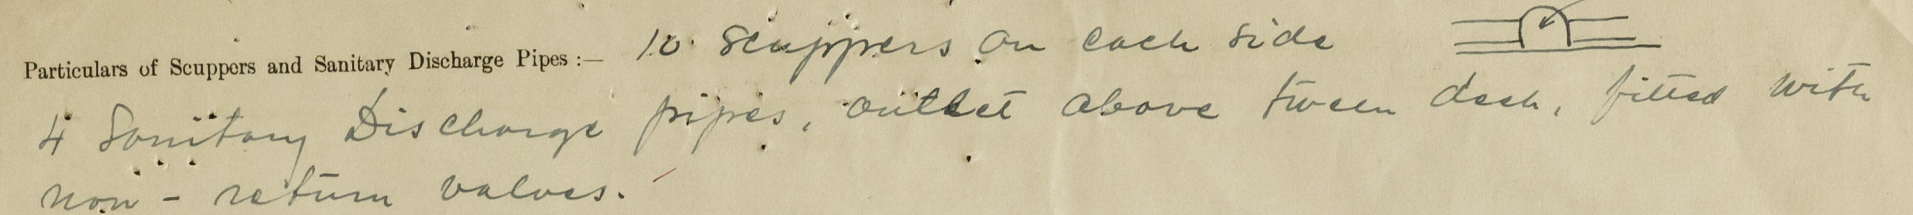 Particulars of Scuppers and Sanitary Discharge Pipes :— 10 scuppers on each side
4 Sanitary Discharge pipes, outlet above tween deck, fitted with
non - return valves.